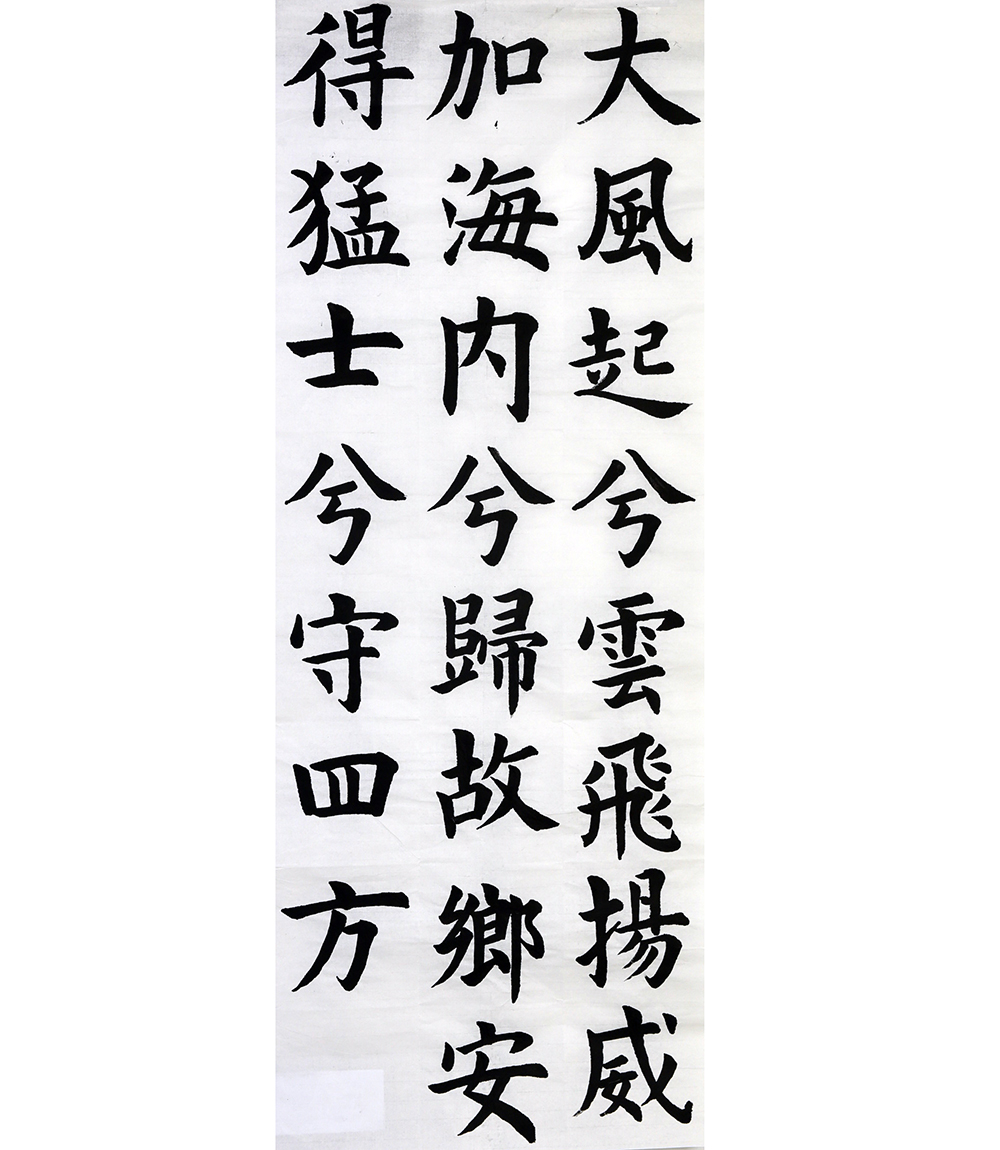 大風起兮雲飛揚威
加海内兮歸故鄉安
得猛士兮守四方